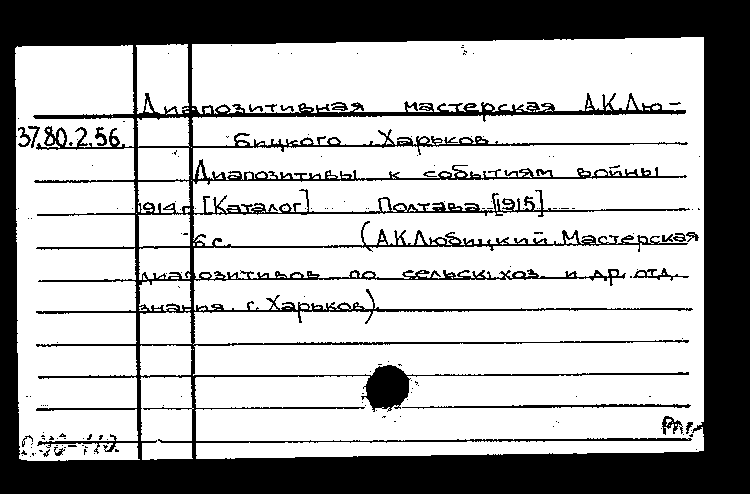 Диапозитивная мастерская А.К.Лю-
37.80.2.56. бицкого. Харьков.
Диапозитивы к событиям войны
1914 г. [Каталог]. Полтава, [1915].
6 с. (А.К.Любицкий. Мастерская
диапозитивов по сельск. хоз. и др. отд.
знания. г. Харьков).